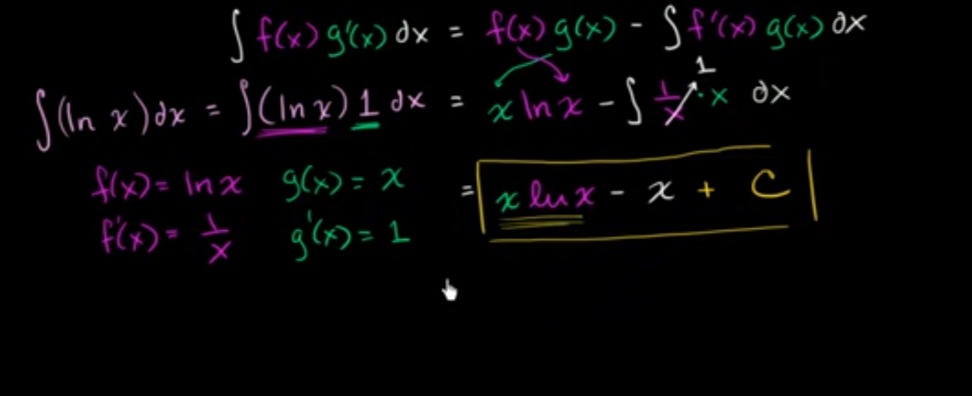 ∫ f(x) g'(x) dx = f(x) g(x) - ∫ f'(x) g(x) dx
∫(ln x) dx = ∫(ln x) 1 dx = x ln x - ∫ 1/x · x dx
1
f(x) = ln x g(x) = x = x ln x - x + C
f'(x) = 1/x g'(x) = 1